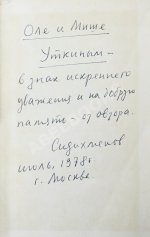 Оле и Мише
Уткиным –
в знак искреннего
уважения и на добрую
память – от автора.
Сидихменов
июль, 1978 г.
г. Москва